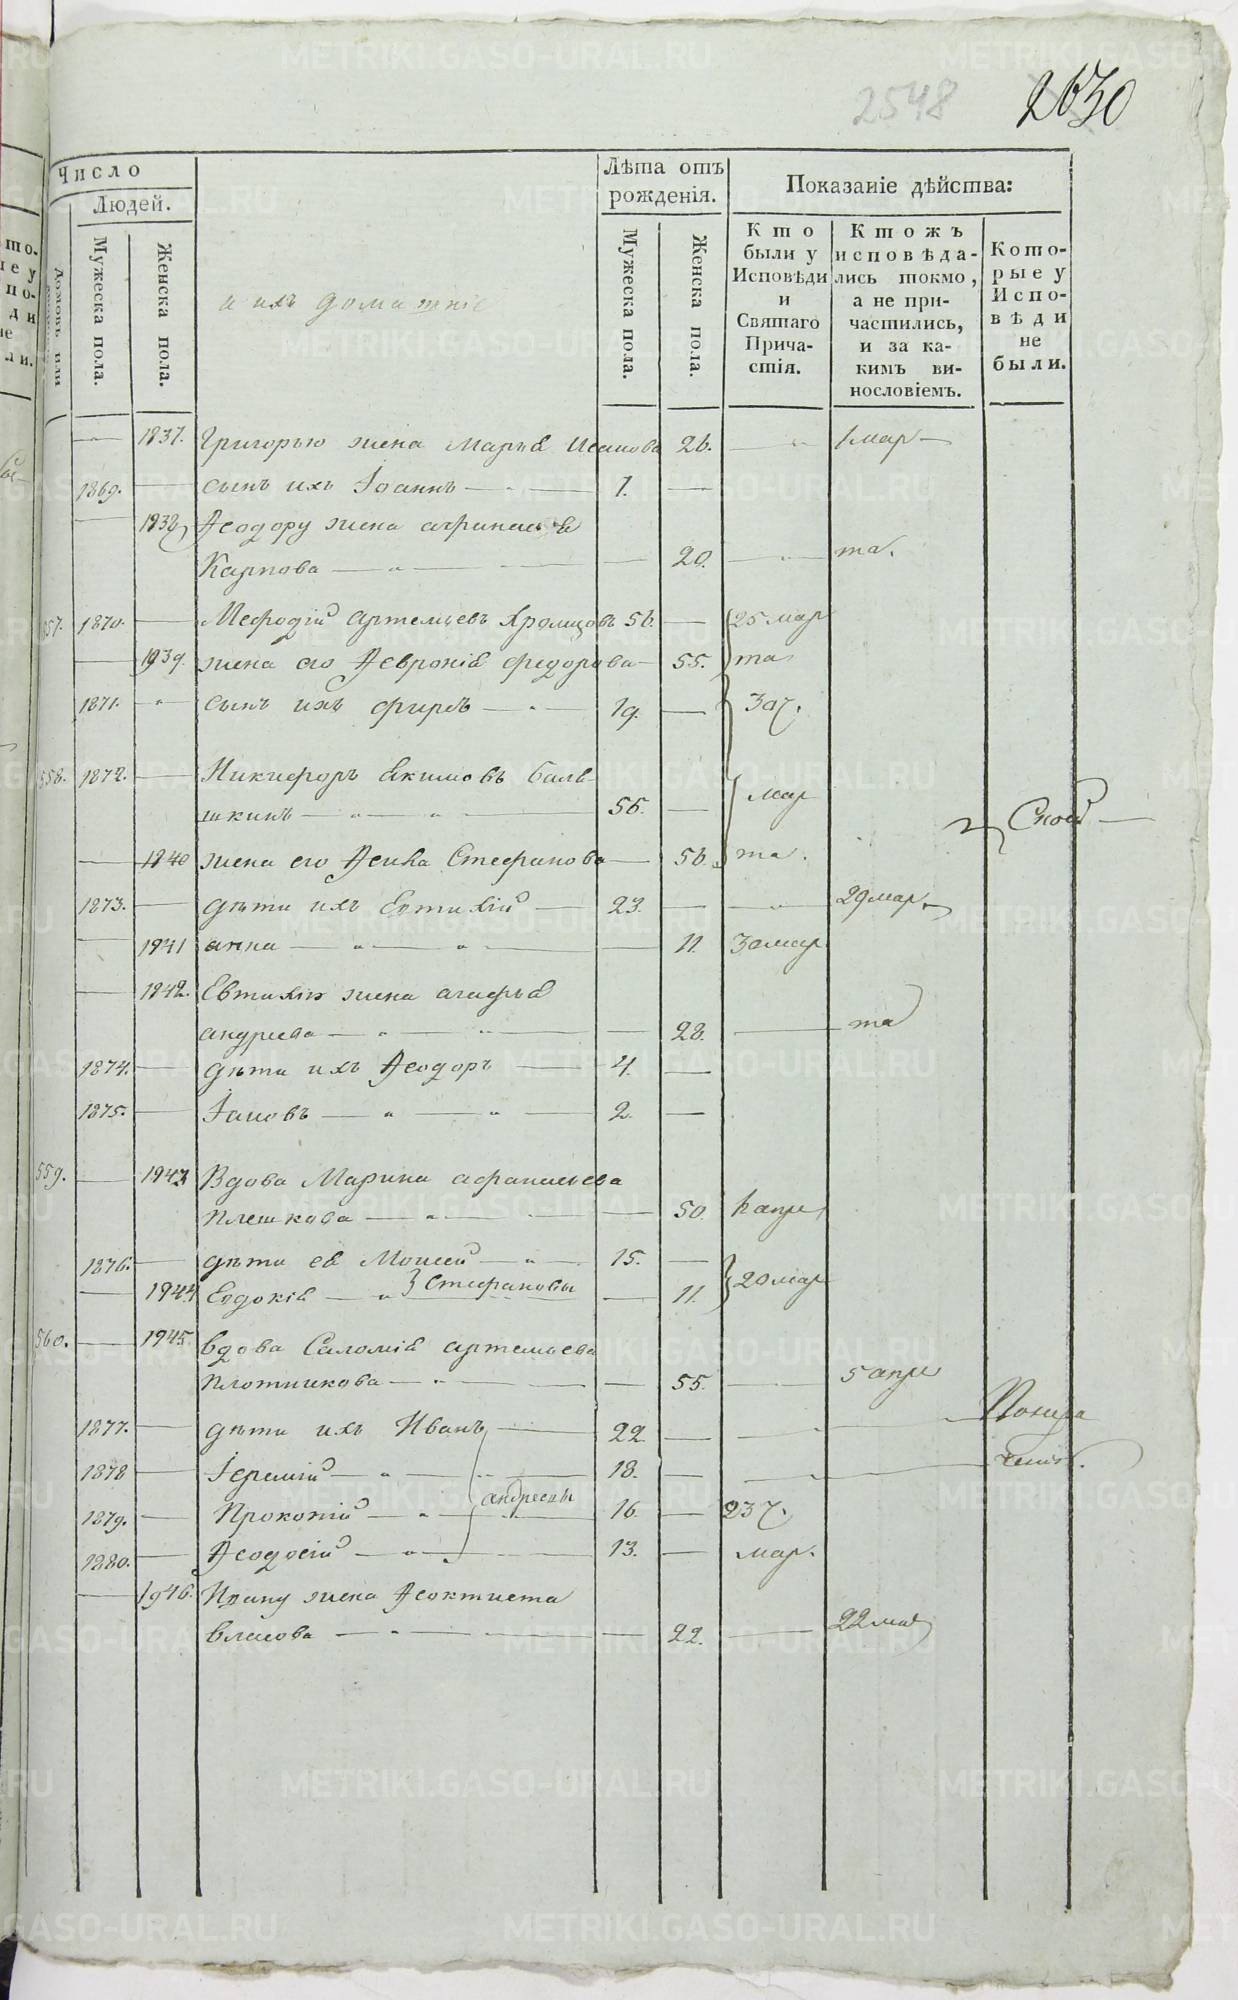 2548 2630
Число
Людей.
Домовъ или
Мужеска пола.
Женска пола.
и ихъ домашніе
Лѣта отъ рожденія.
Мужеска пола.
Женска пола.
Показаніе дѣйства:
Кто были у Исповѣди и Святаго Прича- стія.
Ктожъ исповѣда- лись токмо, а не при- частились, и за ка- кимъ ви- нословіемъ.
Кото- рые у Испо- вѣди не были.
1937. Григорью жена Марья Исакова 26. 1 мар
1869. сынъ ихъ Іоаннъ 1.
1938 Ѳеодору жена
Карпова 20. та.
557. 1870. Мефодій Артемьевъ Хромцовъ 56. 25 мар
1939. жена его Ѳевронія Федорова 55. та
1871. сынъ ихъ 19. 30 ч.
558. 1872. Никифоръ Екимовъ Балв-
шкинъ 55. мар Споѣ
1940 жена его Ѳекла Стефанова 56. та.
1873. дѣти ихъ Евтихій 23. 29 мар
1941 анна 11. 30 мар
1942. Евтихію жена агафья
андреева 28. та
1874. дѣти ихъ Ѳеодоръ 4.
1875. Іаковъ 2.
559. 1943 Вдова Марина афанасьева
Плешкова 50. апре
1876. дѣти ея Моисей 15.
1944 Евдокія Стефановы 11. 20 мар
560. 1945. вдова Саломія артемьева
Плотникова 55. 5 апре
1877. дѣти ихъ Иванъ 22
1878 Іеремій 18.
1879. Прокопій андреевы 16. 23 ч.
1880. Ѳеодосій 13. мар.
1946. Ивану жена Ѳеоктиста
власова 22. 22 мая
METRIKI.GASO-URAL.RU